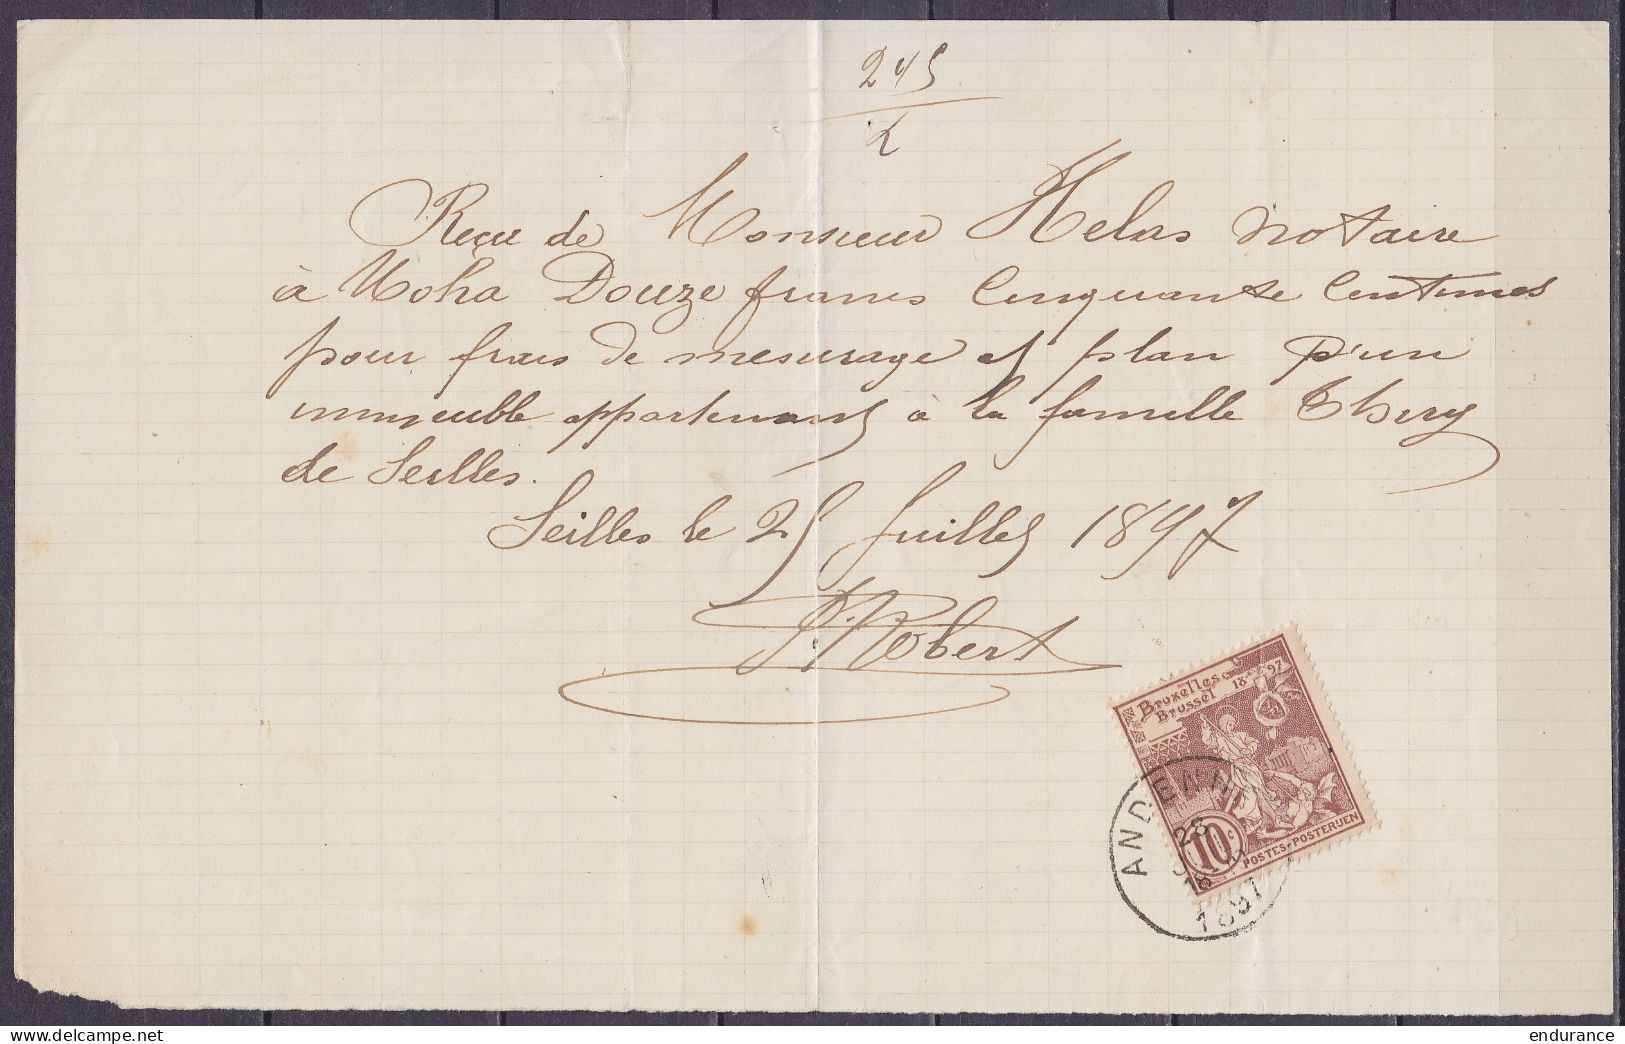 245
Reçu de Monsieur Helas notaire
à Moha Douze francs Cinquante Centimes
pour frais de mesurage et plan d'un
immeuble appartenant à la famille Thiry
de Seilles.
Seilles le 25 Juillet 1897
Robert
Bruxelles 18 97
Brussel
10 c
POSTES-POSTERIJEN
ANDENNE
28
1897
delcampe.net
endurance